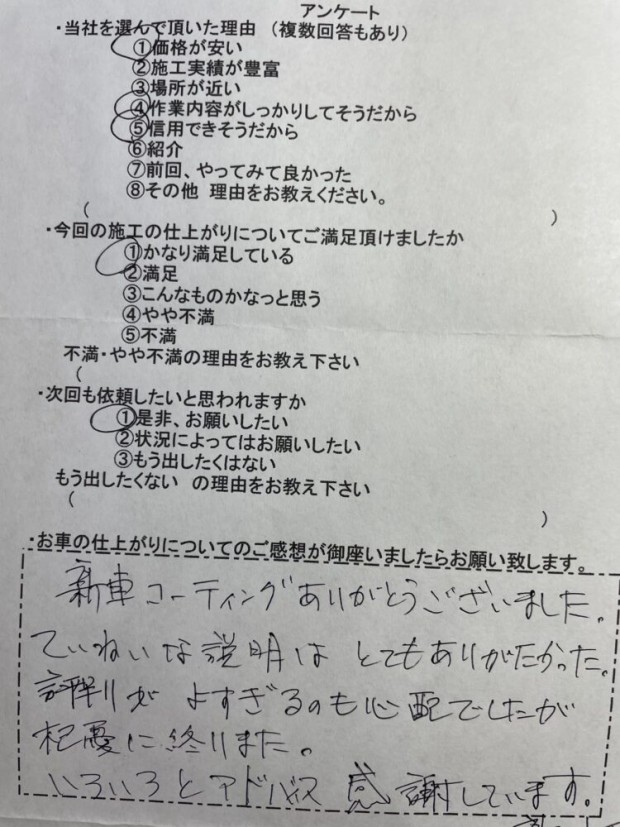 アンケート
・当社を選んで頂いた理由 (複数回答もあり)
①価格が安い
②施工実績が豊富
③場所が近い
④作業内容がしっかりしてそうだから
⑤信用できそうだから
⑥紹介
⑦前回、やってみて良かった
⑧その他 理由をお教えください。
( )
・今回の施工の仕上がりについてご満足頂けましたか
①かなり満足している
②満足
③こんなものかなっと思う
④やや不満
⑤不満
不満・やや不満の理由をお教え下さい
(
・次回も依頼したいと思われますか
①是非、お願いしたい
②状況によってはお願いしたい
③もう出したくはない
もう出したくない の理由をお教え下さい
( )
・お車の仕上がりについてのご感想が御座いましたらお願い致します。
新車コーティングありがとうございました。
ていねいな説明はとてもありがたかった。
評判がよすぎるのも心配でしたが
杞憂に終りました。
いろいろとアドバイス感謝しています。